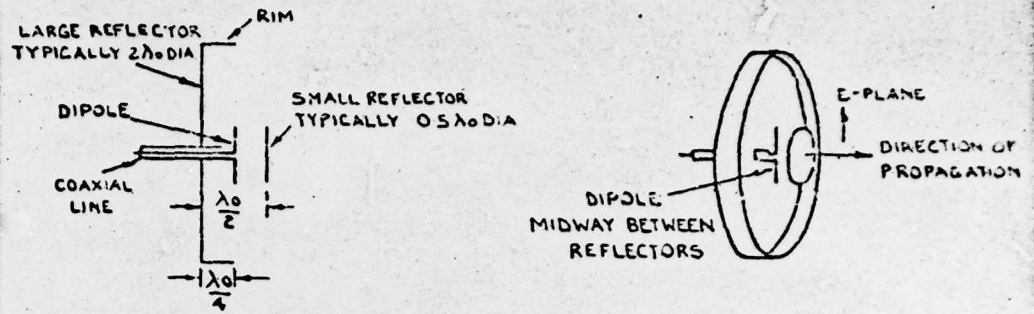 RIM
LARGE REFLECTOR
TYPICALLY 2λ0 DIA
DIPOLE
SMALL REFLECTOR
TYPICALLY 0.5 λ0 DIA
COAXIAL
LINE
λ0
2
λ0
4
E-PLANE
DIRECTION OF
PROPAGATION
DIPOLE
MIDWAY BETWEEN
REFLECTORS